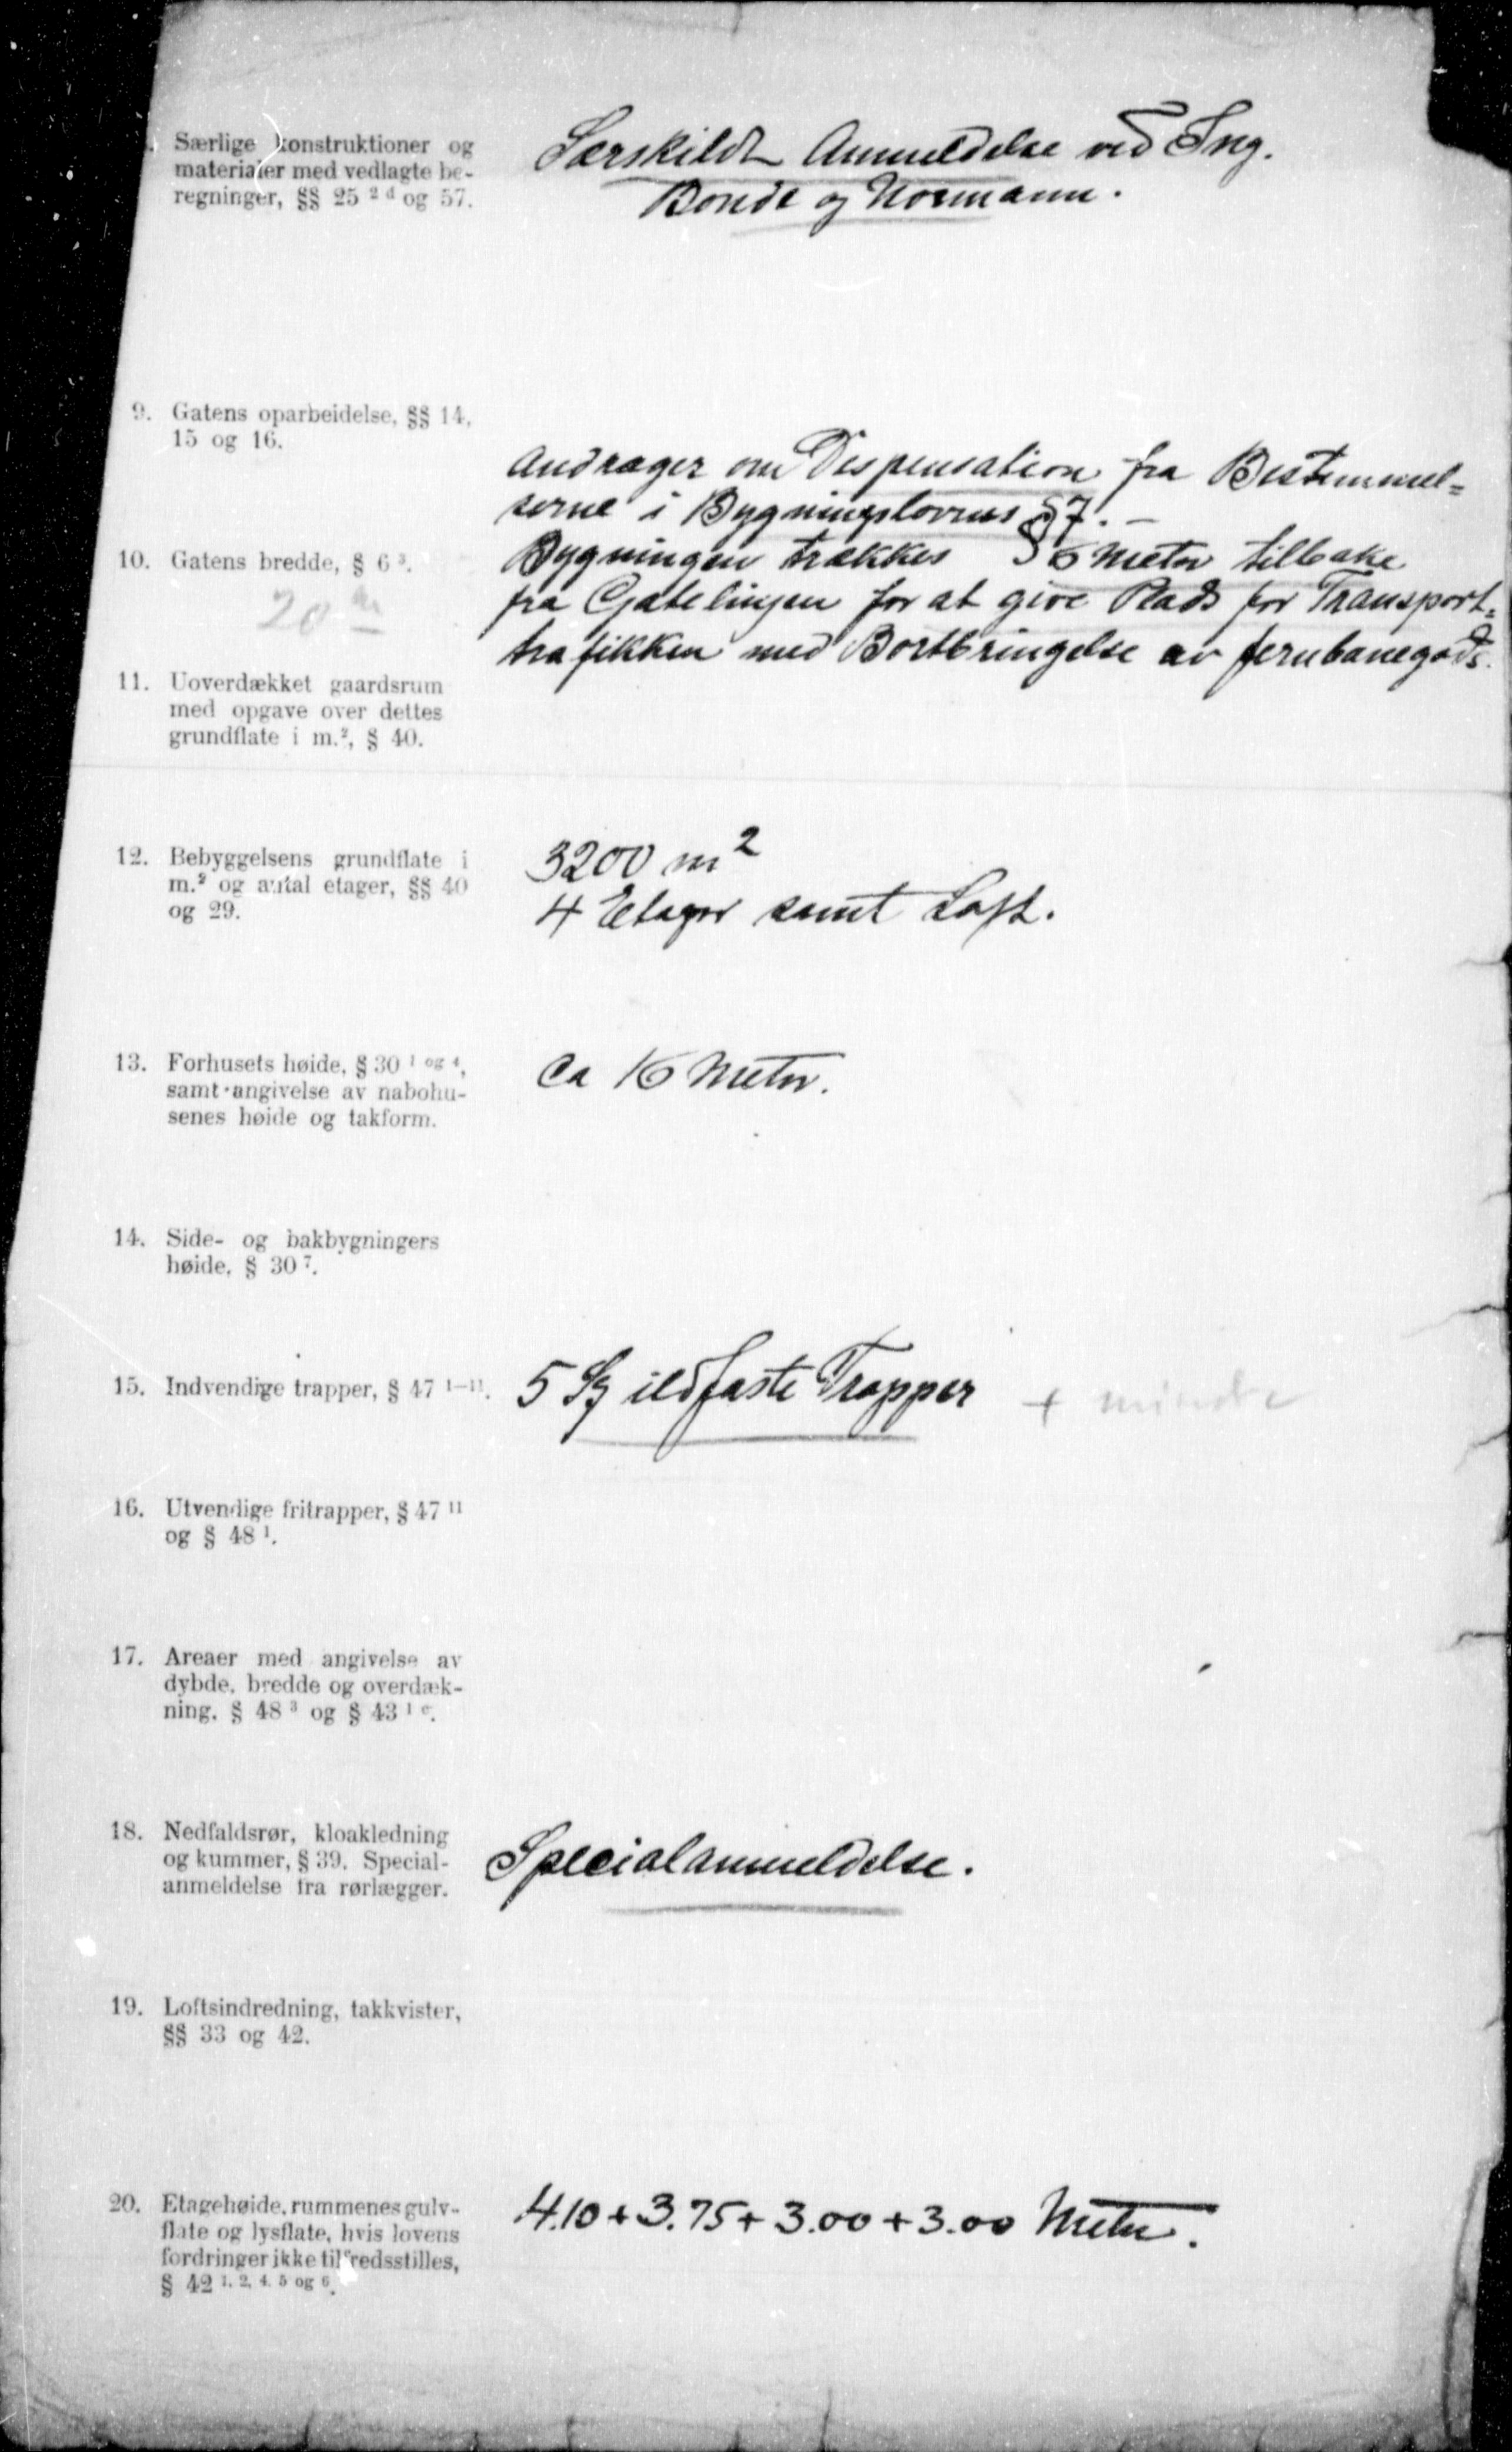 Særlige konstruktioner og
materialer med vedlagte be-
regninger, §§ 25 2 d og 57.
Særskildt Anmeldelse ved Ing.
Bonde og Normann.
9. Gatens oparbeidelse, §§ 14,
15 og 16.
Andrager om Dispensation fra Bestemmel=
serne i Bygningslovens § 7. —
10. Gatens bredde, § 6 3.
20 m
Bygningen trækkes 6 Meter tilbake
fra Gatelinjen for at give Plads for Transport=
trafikken med Bortbringelse av jernbanegods.
11. Uoverdækket gaardsrum
med opgave over dettes
grundflate i m.², § 40.
12. Bebyggelsens grundflate i
m.² og antal etager, §§ 40
og 29.
3200 m²
4 Etager samt Loft.
13. Forhusets høide, § 30 1 og 4,
samt angivelse av nabohu-
senes høide og takform.
Ca 16 Meter.
14. Side- og bakbygningers
høide, § 30 7.
15. Indvendige trapper, § 47 1—11.
5 Sy ildfaste Trapper + mindre
16. Utvendige fritrapper, § 47 11
og § 48 1.
17. Areaer med angivelse av
dybde, bredde og overdæk-
ning, § 48 3 og § 43 1 c.
18. Nedfaldsrør, kloakledning
og kummer, § 39. Special-
anmeldelse fra rørlægger.
Specialanmeldelse.
19. Loftsindredning, takkvister,
§§ 33 og 42.
20. Etagehøide, rummenes gulv-
flate og lysflate, hvis lovens
fordringer ikke tilfredsstilles,
§ 42 1, 2, 4, 5 og 6.
4.10 + 3.75 + 3.00 + 3.00 Meter.